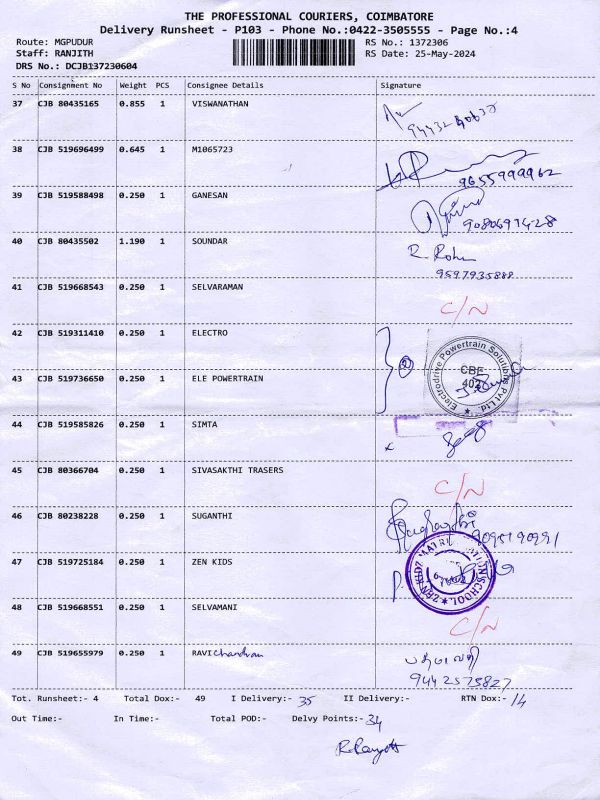 THE PROFESSIONAL COURIERS, COIMBATORE
Delivery Runsheet - P103 - Phone No.:0422-3505555 - Page No.:4
Route: MGPUDUR RS No.: 1372306
Staff: RANJITH RS Date: 25-May-2024
DRS No.: DCJB137230604
S No Consignment No Weight PCS Consignee Details Signature
37 CJB 80435165 0.855 1 VISWANATHAN
38 CJB 519696499 0.645 1 M1065723
9655999962
39 CJB 519588498 0.250 1 GANESAN
9080697428
40 CJB 80435502 1.190 1 SOUNDAR
R. Rohn
9597935888
41 CJB 519668543 0.250 1 SELVARAMAN
C/N
42 CJB 519311410 0.250 1 ELECTRO
Electrodrive Powertrain Solutions Pvt Ltd.
CBE
402
43 CJB 519736650 0.250 1 ELE POWERTRAIN
2
44 CJB 519585826 0.250 1 SIMTA
45 CJB 80366704 0.250 1 SIVASAKTHI TRASERS
C/N
46 CJB 80238228 0.250 1 SUGANTHI
9095190991
47 CJB 519725184 0.250 1 ZEN KIDS
ZEN KIDZ MATRICULATION SCHOOL
48 CJB 519668551 0.250 1 SELVAMANI
C/N
49 CJB 519655979 0.250 1 RAVI chandran
பத்மாவதி
9442575827
Tot. Runsheet:- 4 Total Dox:- 49 I Delivery:- 35 II Delivery:- RTN Dox:- 14
Out Time:- In Time:- Total POD:- Delvy Points:- 34
R. Ranjith